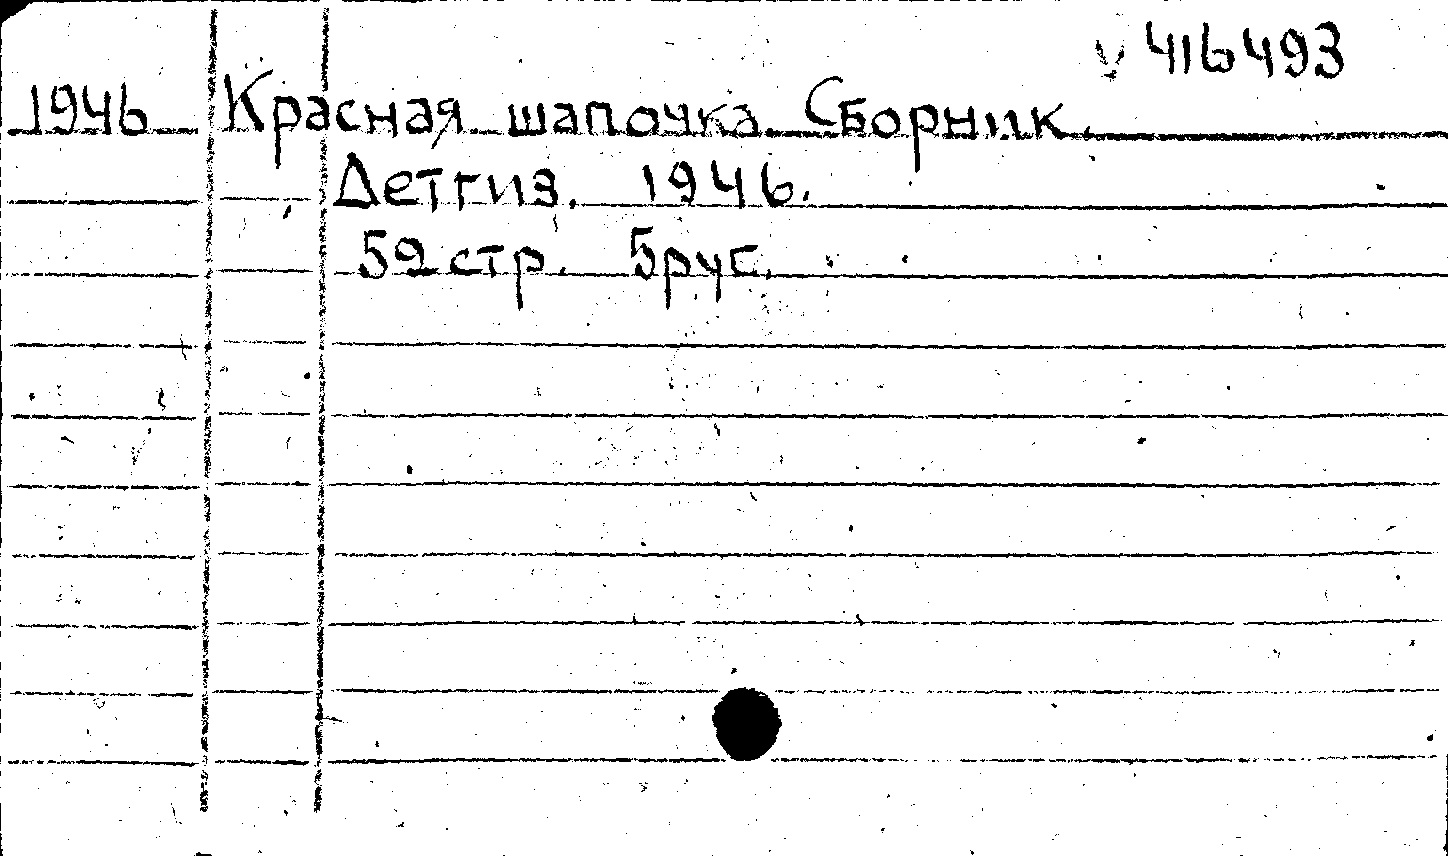 v 416493
1946 Красная шапочка. Сборник.
Детгиз. 1946.
52 стр. 5 рус.